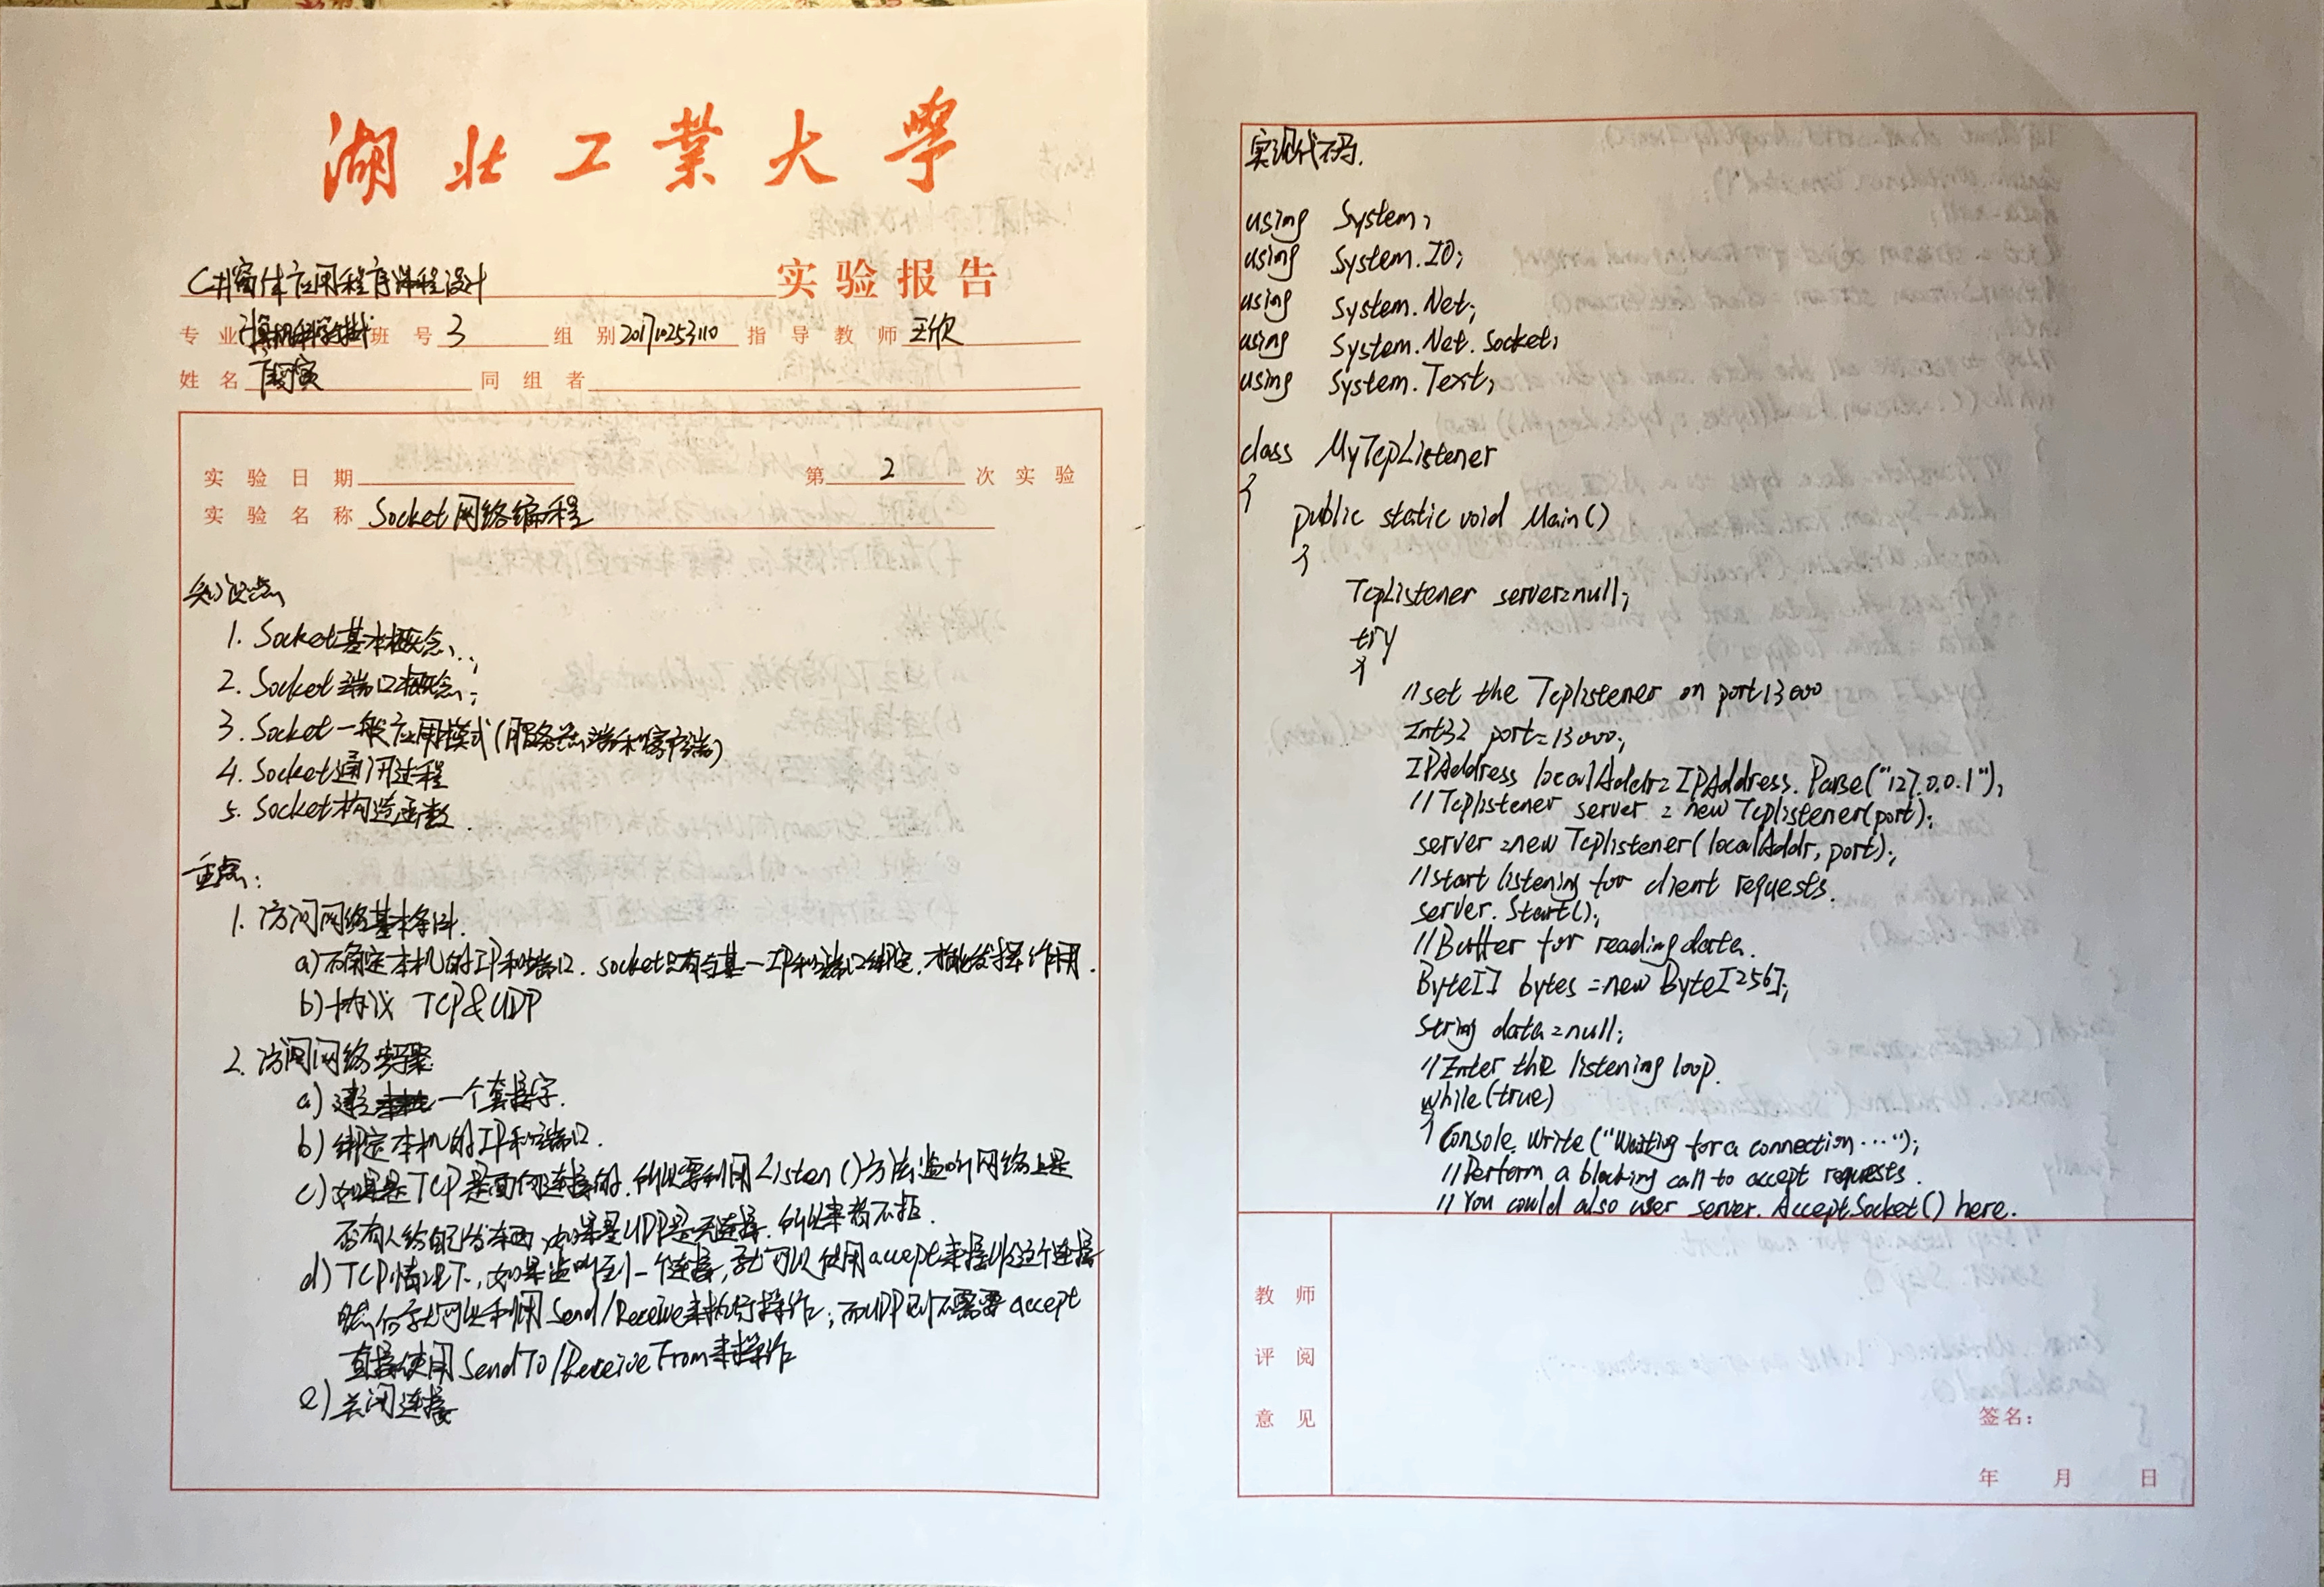 湖北工業大學
C#窗体应用程序课程设计 实验报告
专业 计算机科学与技术 班号 3 组别 201710253110 指导教师 王欣
姓名 同组者
实验日期 第 2 次实验
实验名称 Socket网络编程
知识点
1. Socket基本概念;
2. Socket端口概念;
3. Socket一般应用模式(服务器端和客户端)
4. Socket通讯过程
5. Socket构造函数.
重点:
1. 访问网络基本条件.
a) 确定本机的IP和端口. socket只有与某一IP和端口绑定, 才能发挥作用.
b) 协议 TCP&UDP
2. 访问网络步骤
a) 建立一个套接字.
b) 绑定本机的IP和端口.
c) 如果是TCP是面向连接的, 所以要利用Listen()方法监听网络上是
否有人给自己发东西, 如果是UDP是无连接, 所以来者不拒.
d) TCP情况下, 如果监听到一个连接, 就可以使用accept来接收这个连接
然后就可以利用Send/Receive来执行操作; 而UDP则不需要accept
直接使用SendTo/ReceiveFrom来操作
e) 关闭连接
实现代码.
using System;
using System.IO;
using System.Net;
using System.Net.Socket;
using System.Text;
class MyTcpListener
{
public static void Main()
{
TcpListener server=null;
try
{
//set the Tcplistener on port 13000
Int32 port=13000;
IPAddress localAddr=IPAddress.Parse("127.0.0.1");
//Tcplistener server = new Tcplistener(port);
server=new Tcplistener(localAddr, port);
//start listening for client requests.
server.Start();
//Buffer for reading data.
Byte[] bytes=new Byte[256];
String data=null;
//Enter the listening loop.
while(true)
{ Console.Write("Waiting for a connection...");
//Perform a blocking call to accept requests.
//You could also user server.AcceptSocket() here.
教师
评阅
意见
签名:
年 月 日